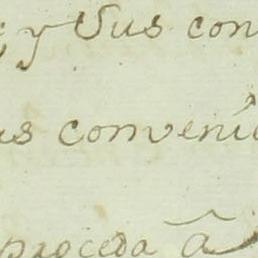 y Sus con
us conveni
proceda â